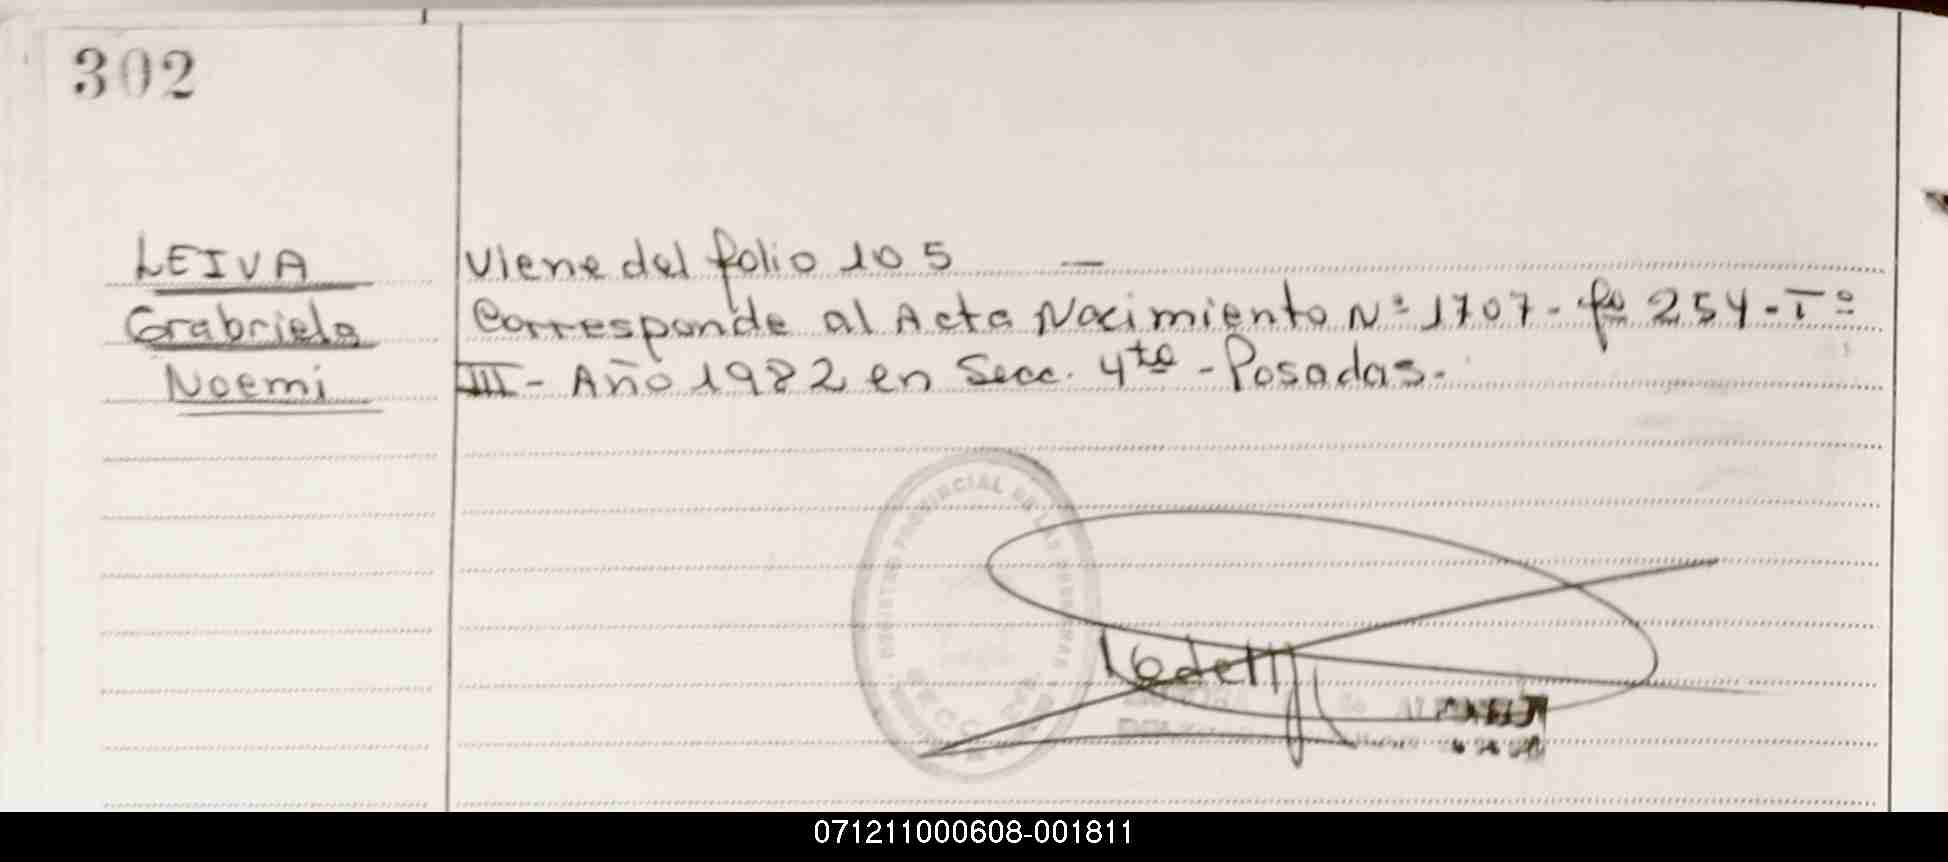 302
LEIVA
Grabriela
Noemi
Viene del folio 105 —
Corresponde al Acta Nacimiento Nº 1707 - fº 254 - Tº
III - Año 1982 en Secc. 4ta - Posadas.
REGISTRO PROVINCIAL DE LAS PERSONAS
SECC.
071211000608-001811